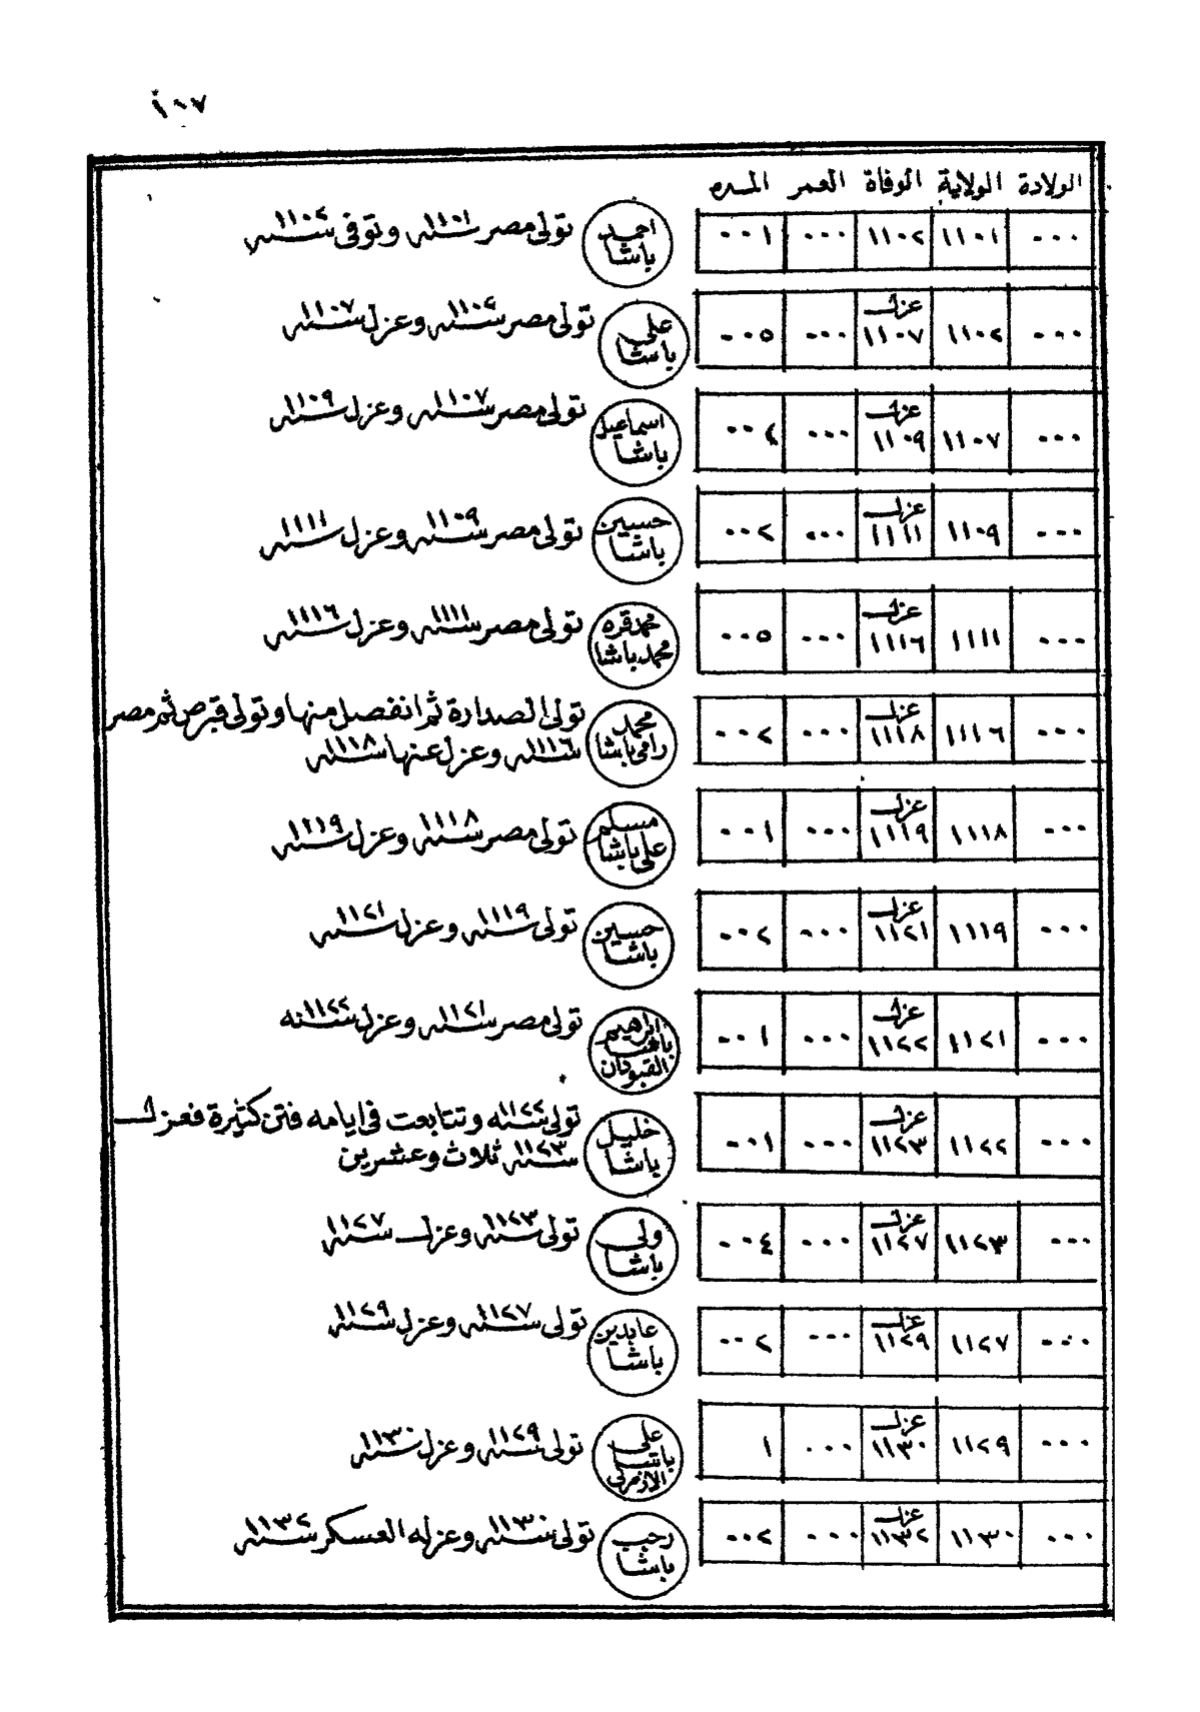 ١٠٧
الولادة الولاية الوفاة العمر المده
٠٠٠ ١١٠١ ١١٠٢ ٠٠٠ ٠٠١ احمد باشا تولى مصر سنه ١١٠١ وتوفى سنه ١١٠٢
٠٠٠ ١١٠٢ عزل ١١٠٧ ٠٠٠ ٠٠٥ على باشا تولى مصر سنه ١١٠٢ وعزل سنه ١١٠٧
٠٠٠ ١١٠٧ عزل ١١٠٩ ٠٠٠ ٠٠٤ اسماعيل باشا تولى مصر سنه ١١٠٧ وعزل سنه ١١٠٩
٠٠٠ ١١٠٩ عزل ١١١١ ٠٠٠ ٠٠٢ حسين باشا تولى مصر سنه ١١٠٩ وعزل سنه ١١١١
٠٠٠ ١١١١ عزل ١١١٦ ٠٠٠ ٠٠٥ محمد قره محمد باشا تولى مصر سنه ١١١١ وعزل سنه ١١١٦
٠٠٠ ١١١٦ عزل ١١١٨ ٠٠٠ ٠٠٢ محمد رامى باشا تولى الصدارة ثم انفصل منها وتولى قبرص ثم مصر
سنه ١١١٦ وعزل عنها سنه ١١١٨
٠٠٠ ١١١٨ عزل ١١١٩ ٠٠٠ ٠٠١ مسلم على باشا تولى مصر سنه ١١١٨ وعزل سنه ١١١٩
٠٠٠ ١١١٩ عزل ١١٢١ ٠٠٠ ٠٠٢ حسين باشا تولى سنه ١١١٩ وعزل سنه ١١٢١
٠٠٠ ١١٢١ عزل ١١٢٢ ٠٠٠ ٠٠١ ابراهيم باشا القبودان تولى مصر سنه ١١٢١ وعزل سنه ١١٢٢
٠٠٠ ١١٢٢ عزل ١١٢٣ ٠٠٠ ٠٠١ خليل باشا تولى سنه ١١٢٢ وتتابعت فى ايامه فتن كثيرة فعزل
سنه ١١٢٣ ثلاث وعشرين
٠٠٠ ١١٢٣ عزل ١١٢٧ ٠٠٠ ٠٠٤ ولى باشا تولى سنه ١١٢٣ وعزل سنه ١١٢٧
٠٠٠ ١١٢٧ عزل ١١٢٩ ٠٠٠ ٠٠٢ عابدين باشا تولى سنه ١١٢٧ وعزل سنه ١١٢٩
٠٠٠ ١١٢٩ عزل ١١٣٠ ٠٠٠ ١ على باشا الازمرلى تولى سنه ١١٢٩ وعزل سنه ١١٣٠
٠٠٠ ١١٣٠ عزل ١١٣٢ ٠٠٠ ٠٠٢ رجب باشا تولى سنه ١١٣٠ وعزله العسكر سنه ١١٣٢